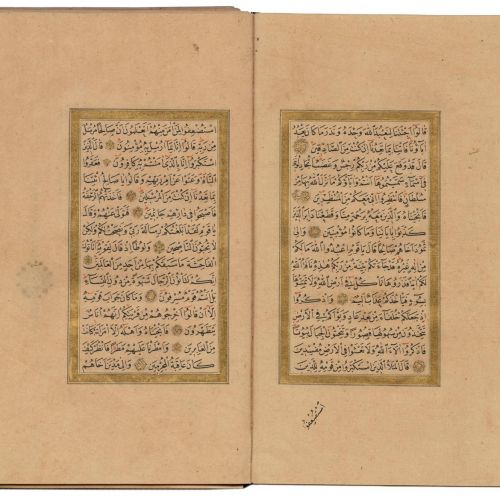 قالوا اجئتنا لنعبد الله وحده ونذر ما كان يعبد
اباؤنا فأتنا بما تعدنا ان كنت من الصادقين
قال قد وقع عليكم من ربكم رجس وغضب اتجادلونني
في اسماء سميتموها انتم واباؤكم ما نزل الله بها من
سلطان فانتظروا اني معكم من المنتظرين
فانجيناه والذين معه برحمة منا وقطعنا دابر الذين
كذبوا باياتنا وما كانوا مؤمنين والى
ثمود اخاهم صالحا قال يا قوم اعبدوا الله ما لكم
من اله غيره قد جاءتكم بينة من ربكم هذه ناقة الله
لكم اية فذروها تأكل في ارض الله ولا تمسوها
بسوء فيأخذكم عذاب اليم واذكروا
اذ جعلكم خلفاء من بعد عاد وبوأكم في الارض
تتخذون من سهولها قصورا وتنحتون الجبال بيوتا
فاذكروا الاء الله ولا تعثوا في الارض مفسدين
قال الملأ الذين استكبروا من قومه للذين
استضعفوا
استضعفوا لمن امن منهم اتعلمون ان صالحا مرسل
من ربه قالوا انا بما ارسل به مؤمنون قال الذين
استكبروا انا بالذي امنتم به كافرون فعقروا
الناقة وعتوا عن امر ربهم وقالوا يا صالح ائتنا
بما تعدنا ان كنت من المرسلين فاخذتهم الرجفة
فاصبحوا في دارهم جاثمين فتولى عنهم وقال
يا قوم لقد ابلغتكم رسالة ربي ونصحت لكم ولكن
لا تحبون الناصحين ولوطا اذ قال لقومه اتأتون
الفاحشة ما سبقكم بها من احد من العالمين
انكم لتأتون الرجال شهوة من دون النساء
بل انتم قوم مسرفون وما كان جواب قومه
الا ان قالوا اخرجوهم من قريتكم انهم اناس
يتطهرون فانجيناه واهله الا امرأته كانت
من الغابرين وامطرنا عليهم مطرا فانظر كيف
كان عاقبة المجرمين والى مدين اخاهم